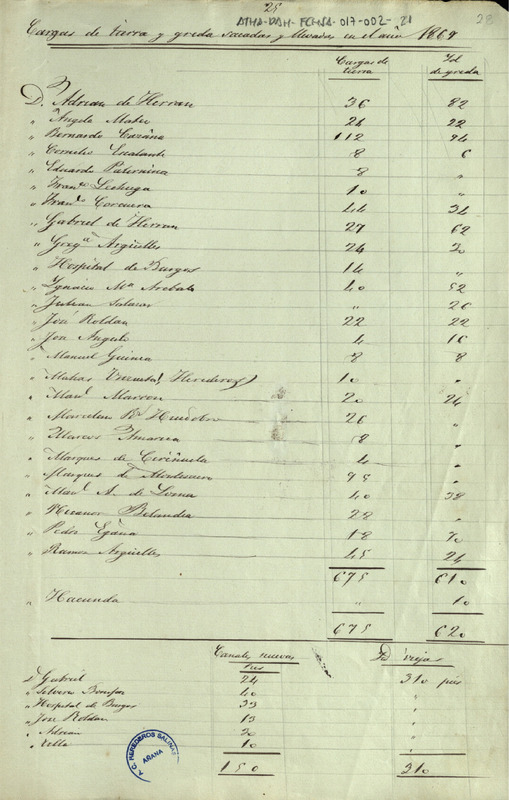 25
ATHA-DAH-FCHSA-017-002-21
28
Cargas de tierra y greda sacadas y llevadas en el año 1867
Cargas de tierra Id de greda
D. Adrian de Herran 36 82
" Angel Mateo 26 22
" Bernardo 112 24
" Cornelio Escalante 8 6
" Eduardo Paternina 8 "
" Franco Lechuga 10 "
" Franco Corcuera 44 34
" Gabriel de Herran 27 62
" Grega Argüelles 24 20
" Hospital de Burgos 14 "
" Ygnacio Ma 40 52
" Julian Salazar " 26
" José Roldan 22 22
" Jose Angulo 4 16
" Manuel Guinea 8 8
" Matias Herederos 10 "
" Manl Marron 20 24
" Marcelino 26 "
" Marcos 8 "
" Marques de 4 "
" Marques de Montesacro 95 "
" Manl A. de 40 38
" Nicanor Belandia 22 "
" Pedro Egaña 18 70
" Ramon Argüelles 45 24
675 610
" Hacienda " 10
675 620
Canales nuevas Id viejas
Pies
D Gabriel 24 310 pies
" Silverio 40 "
" Hospital de Burgos 33 "
" Jose Roldan 13 "
" Adrian 20 "
" 10 "
150 310
A. C. HEREDEROS SALINAS
AÑANA